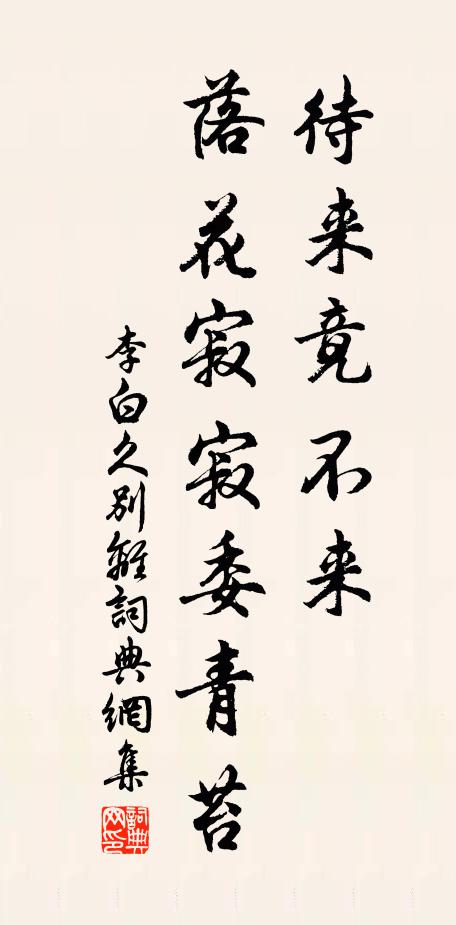 待来竟不来
落花寂寂委青苔
李白久别離詞典網集
詞典网印